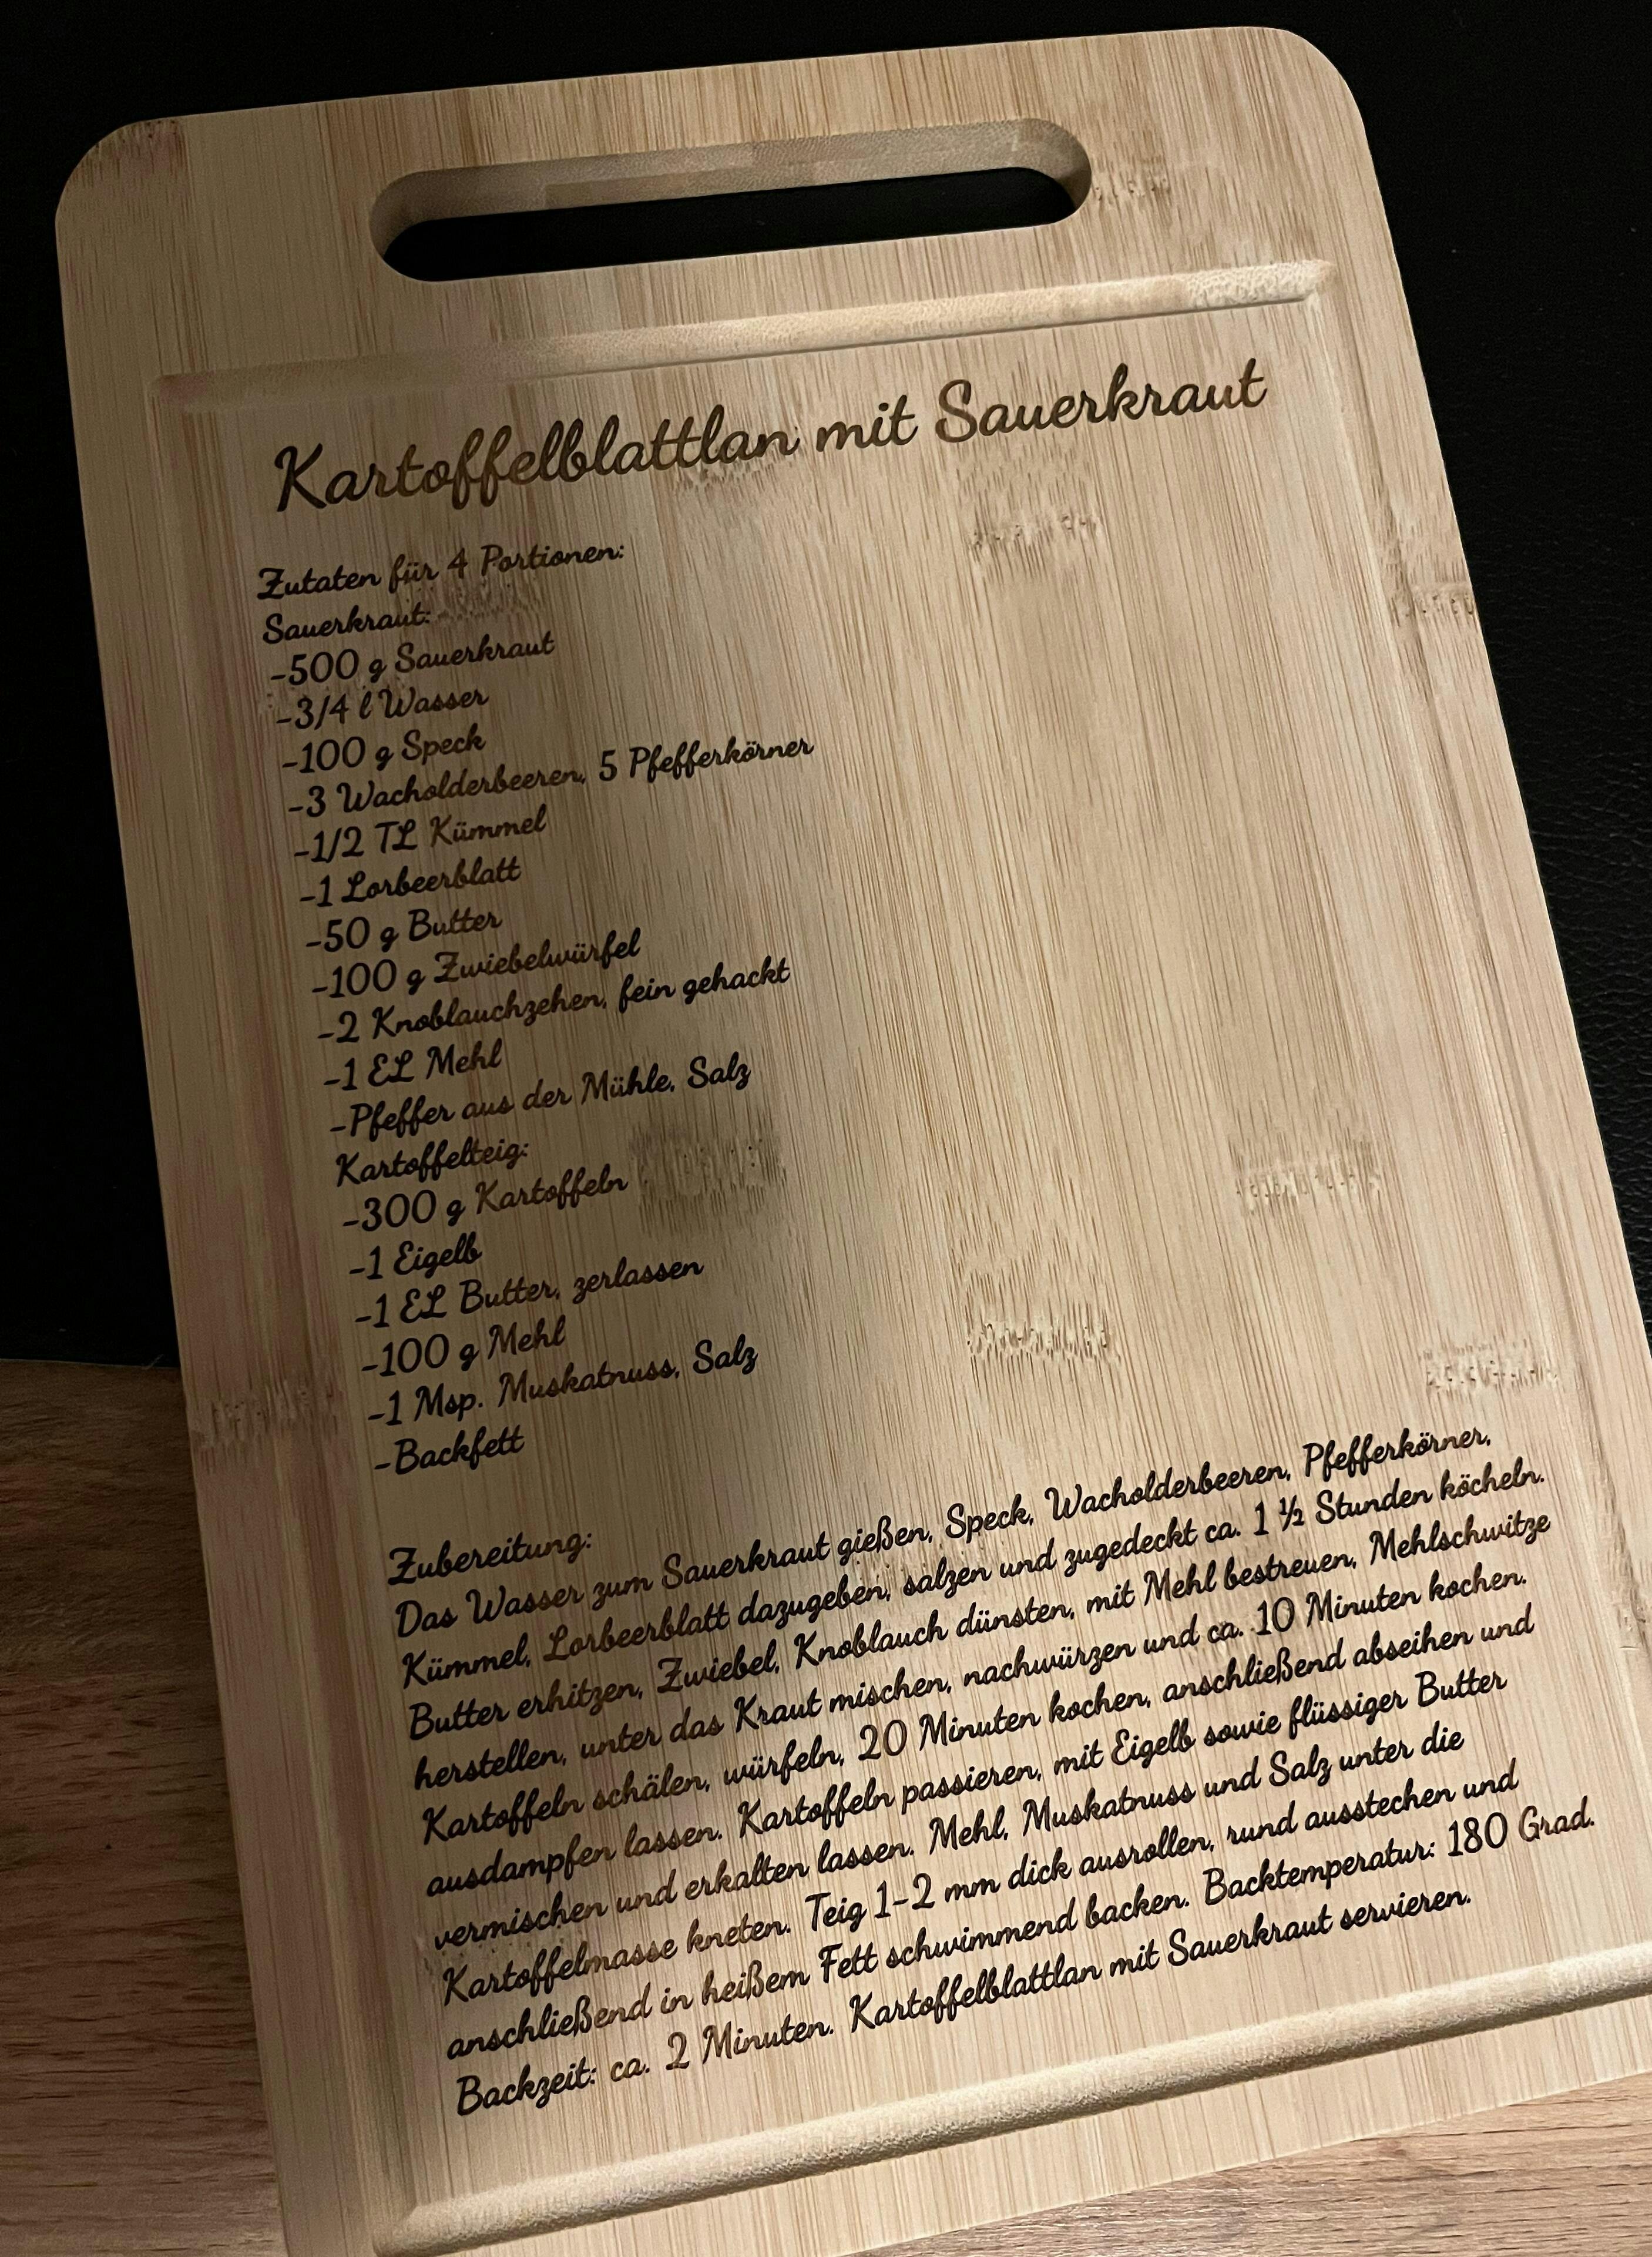 Kartoffelblattlan mit Sauerkraut
Zutaten für 4 Portionen:
Sauerkraut:
-500 g Sauerkraut
-3/4 l Wasser
-100 g Speck
-3 Wacholderbeeren, 5 Pfefferkörner
-1/2 TL Kümmel
-1 Lorbeerblatt
-50 g Butter
-100 g Zwiebelwürfel
-2 Knoblauchzehen, fein gehackt
-1 EL Mehl
-Pfeffer aus der Mühle, Salz
Kartoffelteig:
-300 g Kartoffeln
-1 Eigelb
-1 EL Butter, zerlassen
-100 g Mehl
-1 Msp. Muskatnuss, Salz
-Backfett
Zubereitung:
Das Wasser zum Sauerkraut gießen, Speck, Wacholderbeeren, Pfefferkörner,
Kümmel, Lorbeerblatt dazugeben, salzen und zugedeckt ca. 1 ½ Stunden köcheln.
Butter erhitzen, Zwiebel, Knoblauch dünsten, mit Mehl bestreuen, Mehlschwitze
herstellen, unter das Kraut mischen, nachwürzen und ca. 10 Minuten kochen.
Kartoffeln schälen, würfeln, 20 Minuten kochen, anschließend abseihen und
ausdampfen lassen. Kartoffeln passieren, mit Eigelb sowie flüssiger Butter
vermischen und erkalten lassen. Mehl, Muskatnuss und Salz unter die
Kartoffelmasse kneten. Teig 1-2 mm dick ausrollen, rund ausstechen und
anschließend in heißem Fett schwimmend backen. Backtemperatur: 180 Grad.
Backzeit: ca. 2 Minuten. Kartoffelblattlan mit Sauerkraut servieren.